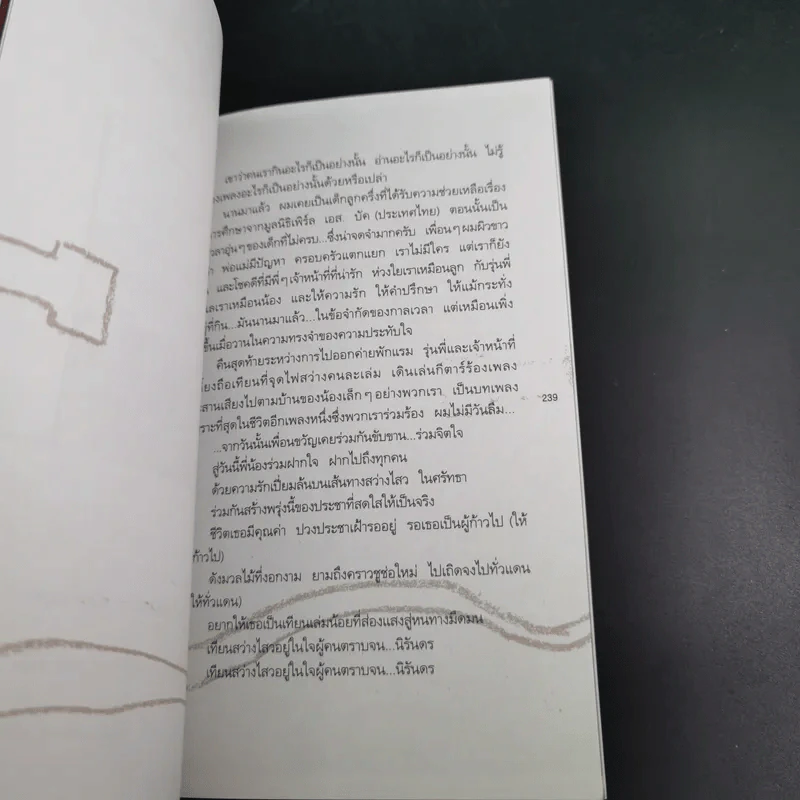 เขาว่าคนเรากินอะไรก็เป็นอย่างนั้น อ่านอะไรก็เป็นอย่างนั้น ไม่รู้
องเพลงอะไรก็เป็นอย่างนั้นด้วยหรือเปล่า
นานมาแล้ว ผมเคยเป็นเด็กลูกครึ่งที่ได้รับความช่วยเหลือเรื่อง
ารศึกษาจากมูลนิธิเพิร์ล เอส. บัค (ประเทศไทย) ตอนนั้นเป็น
วลาอุ่นๆ ของเด็กที่ไม่ครบ...ซึ่งน่าจดจำมากครับ เพื่อนๆ ผมผิวขาว
ำ พ่อแม่มีปัญหา ครอบครัวแตกแยก เราไม่มีใคร แต่เราก็ยัง
และโชคดีที่มีพี่ๆ เจ้าหน้าที่ที่น่ารัก ห่วงใยเราเหมือนลูก กับรุ่นพี่
แลเราเหมือนน้อง และให้ความรัก ให้คำปรึกษา ให้แม้กระทั่ง
ที่กิน...มันนานมาแล้ว...ในข้อจำกัดของกาลเวลา แต่เหมือนเพิ่ง
ขึ้นเมื่อวานในความทรงจำของความประทับใจ
คืนสุดท้ายระหว่างการไปออกค่ายพักแรม รุ่นพี่และเจ้าหน้าที่
ียงถือเทียนที่จุดไฟสว่างคนละเล่ม เดินเล่นกีตาร์ร้องเพลง
ะสานเสียงไปตามบ้านของน้องเล็กๆ อย่างพวกเรา เป็นบทเพลง
ราะที่สุดในชีวิตอีกเพลงหนึ่งซึ่งพวกเราร่วมร้อง ผมไม่มีวันลืม...
239
...จากวันนั้นเพื่อนขวัญเคยร่วมกันขับขาน...ร่วมจิตใจ
สู่วันนี้พี่น้องร่วมฝากใจ ฝากไปถึงทุกคน
ด้วยความรักเปี่ยมล้นบนเส้นทางสว่างไสว ในศรัทธา
ร่วมกันสร้างพรุ่งนี้ของประชาที่สดใสให้เป็นจริง
ชีวิตเธอมีคุณค่า ปวงประชาเฝ้ารออยู่ รอเธอเป็นผู้ก้าวไป (ให้
ก้าวไป)
ดังมวลไม้ที่งอกงาม ยามถึงคราวชูช่อใหม่ ไปเถิดจงไปทั่วแดน
ให้ทั่วแดน)
อยากให้เธอเป็นเทียนเล่มน้อยที่ส่องแสงสู่หนทางมืดมน
เทียนสว่างไสวอยู่ในใจผู้คนตราบจน...นิรันดร
เทียนสว่างไสวอยู่ในใจผู้คนตราบจน...นิรันดร